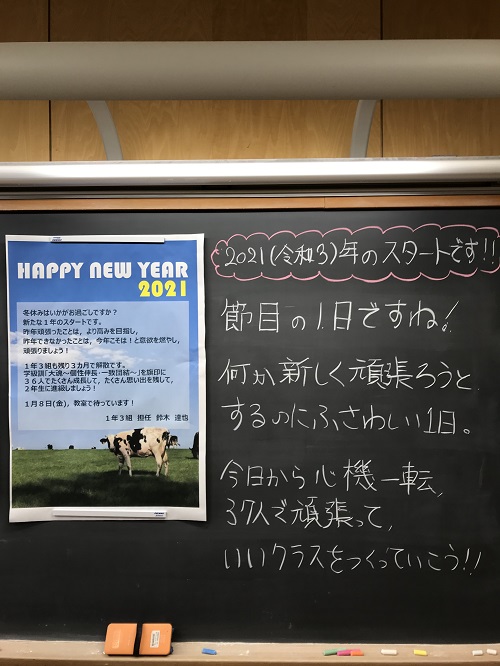 HAPPY NEW YEAR
2021
冬休みはいかがお過ごしですか？
新たな１年のスタートです。
昨年頑張ったことは，より高みを目指し，
昨年できなかったことは，今年こそは！と意欲を燃やし，
頑張りましょう！
１年３組も残り３カ月で解散です。
学級旗「大魂～個性伸長・一致団結～」を旗印に
３６人でたくさん成長して，たくさん思い出を残して，
２年生に進級しましょう！
１月８日(金)，教室で待っています！
１年３組　担任　鈴木　達也
2021(令和3)年のスタートです!!
節目の1日ですね!
何か新しく頑張ろうと
するのにふさわしい1日。
今日から心機一転，
37人で頑張って，
いいクラスをつくっていこう!!